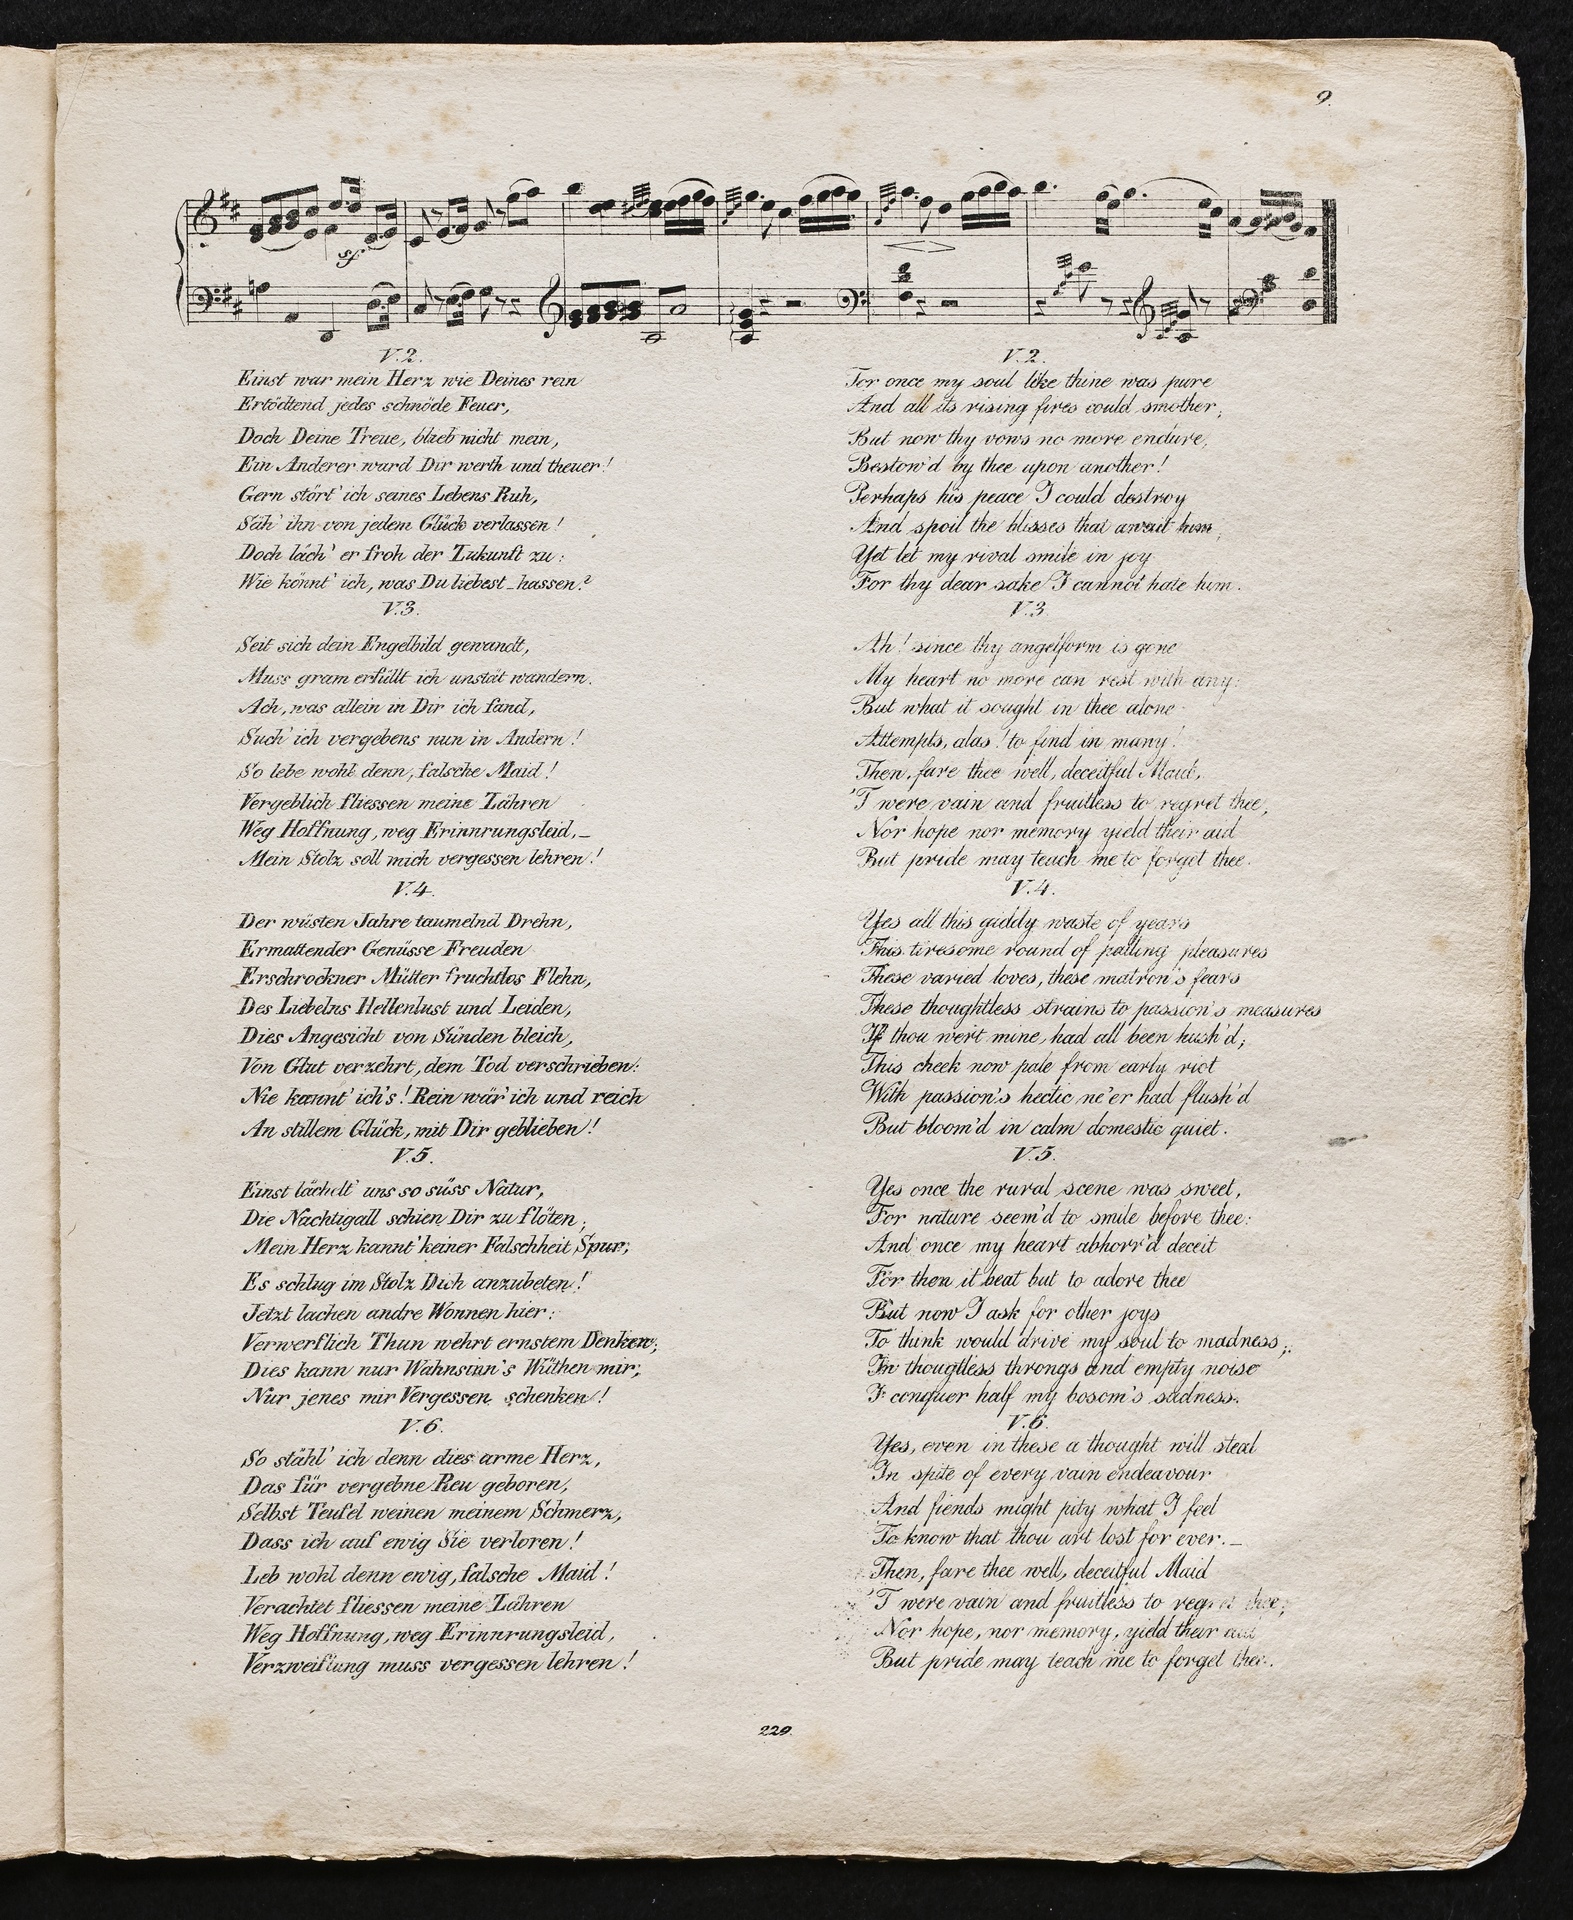 9.
sf
V.2.
Einst war mein Herz wie Deines rein
Ertödtend jedes schnöde Feuer,
Doch Deine Treue, blieb nicht mein,
Ein Anderer ward Dir werth und theuer!
Gern stört' ich seines Lebens Ruh,
Säh' ihn von jedem Glück verlassen!
Doch läch' er froh der Zukunft zu:
Wie könnt' ich, was Du liebest_hassen?
V.3.
Seit sich dein Engelbild gewandt,
Muss gram erfüllt ich unstät wandern.
Ach, was allein in Dir ich fand,
Such' ich vergebens nun in Andern!
So lebe wohl denn, falsche Maid!
Vergeblich fliessen meine Zähren
Weg Hoffnung, weg Erinnrungsleid,_
Mein Stolz soll mich vergessen lehren!
V.4.
Der wüsten Jahre taumelnd Drehn,
Ermattender Genüsse Freuden
Erschrockner Mütter fruchtlos Flehn,
Des Liebelns Hellenlust und Leiden,
Dies Angesicht von Sünden bleich,
Von Glut verzehrt, dem Tod verschrieben:
Nie kannt' ich's! Rein wär' ich und reich
An stillem Glück, mit Dir geblieben!
V.5.
Einst lächelt' uns so süss Natur,
Die Nachtigall schien Dir zu flöten;
Mein Herz kannt' keiner Falschheit Spur;
Es schlug im Stolz Dich anzubeten!
Jetzt lachen andre Wonnen hier:
Verwerflich Thun wehrt ernstem Denken;
Dies kann nur Wahnsinn's Wüthen mir;
Nur jenes mir Vergessen schenken!
V.6.
So stähl' ich denn dies arme Herz,
Das für vergebne Reu geboren,
Selbst Teufel weinen meinem Schmerz,
Dass ich auf ewig Sie verloren!
Leb wohl denn ewig, falsche Maid!
Verachtet fliessen meine Zähren
Weg Hoffnung, weg Erinnrungsleid,
Verzweiflung muss vergessen lehren!
V.2.
For once my soul like thine was pure
And all its rising fires could smother;
But now thy vows no more endure,
Bestow'd by thee upon another!
Perhaps his peace I could destroy
And spoil the blisses that await him;
Yet let my rival smile in joy
For thy dear sake I cannot hate him.
V.3.
Ah! since thy angelform is gone
My heart no more can rest with any:
But what it sought in thee alone
Attempts, alas! to find in many!
Then, fare thee well, deceitful Maid,
'T were vain and fruitless to regret thee,
Nor hope nor memory yield their aid
But pride may teach me to forget thee.
V.4.
Yes all this giddy waste of years
This tiresome round of palling pleasures
These varied loves, these matron's fears
These thoughtless strains to passion's measures
If thou wert mine, had all been hush'd;
This cheek now pale from early riot
With passion's hectic ne'er had flush'd
But bloom'd in calm domestic quiet.
V.5.
Yes once the rural scene was sweet,
For nature seem'd to smile before thee:
And once my heart abhorr'd deceit
For then it beat but to adore thee
But now I ask for other joys
To think would drive my soul to madness;
In thougtless throngs and empty noise
I conquer half my bosom's sadness.
V.6.
Yes, even in these a thought will steal
In spite of every vain endeavour
And fiends might pity what I feel
To know that thou art lost for ever._
Then, fare thee well, deceitful Maid
'T were vain and fruitless to regret thee;
Nor hope, nor memory, yield their aid
But pride may teach me to forget thee.
229.